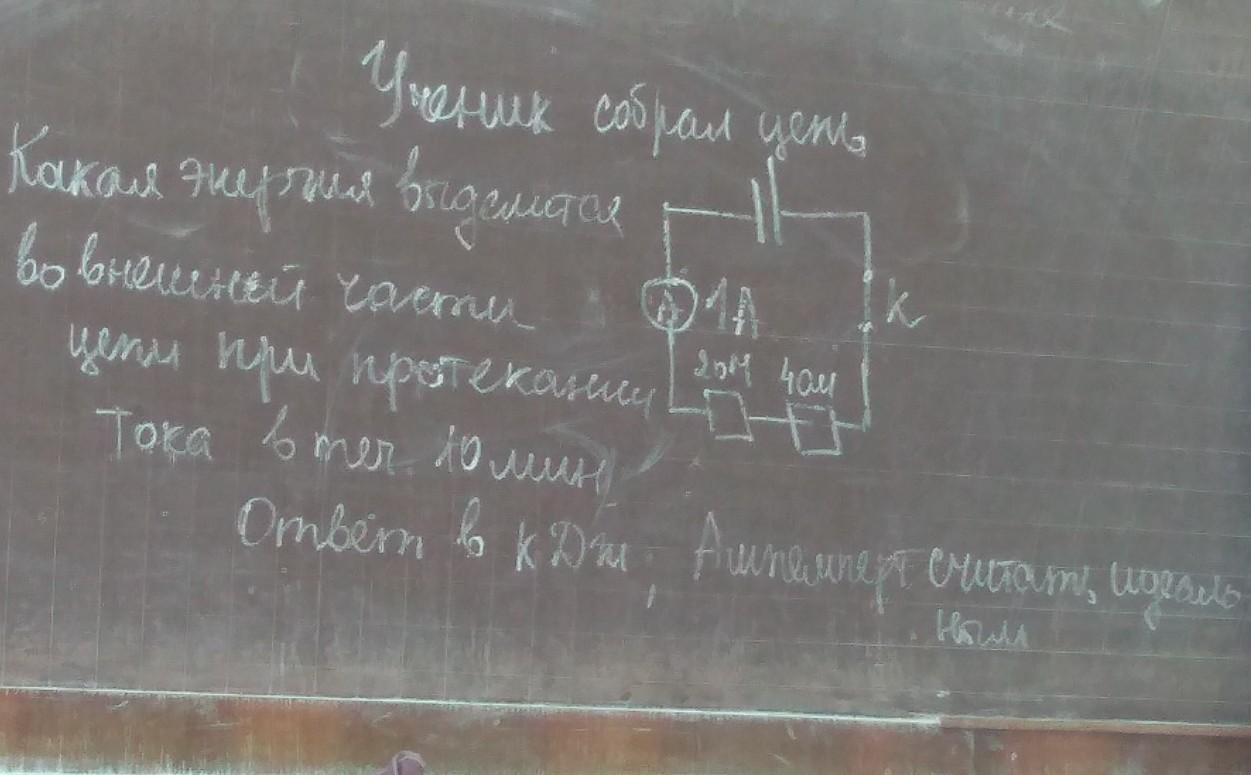 Ученик собрал цепь
Какая энергия выделится
во внешней части
цепи при протекании
Тока в теч. 10 мин
Ответ в кДж, Амперметр считать идеаль
ным
А 1А
К
2ом 4ом